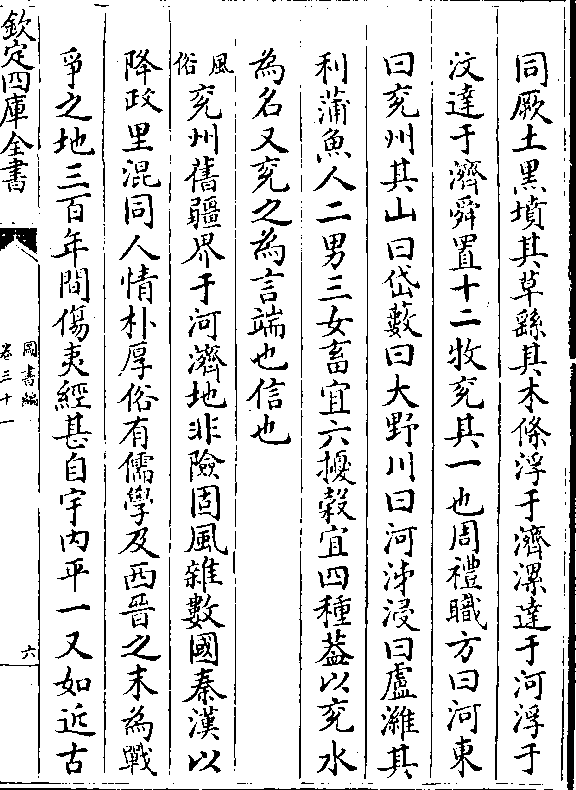 同厥土黑墳其草繇其木條浮于濟漯達于河浮于
汶達于濟舜置十二牧兖其一也周禮職方曰河東
曰兖州其山曰岱藪曰大野川曰河泲浸曰盧濰其
利蒲魚人二男三女畜宜六擾穀宜四種葢以兖水
為名又兖之為言端也信也
風俗兖州舊疆界于河濟地非險固風雜數國秦漢以
降政里混同人情朴厚俗有儒學及西晉之末為戰
爭之地三百年間傷夷經甚自宇内平一又如近古
欽定四庫全書
圖書編
卷三十一
六